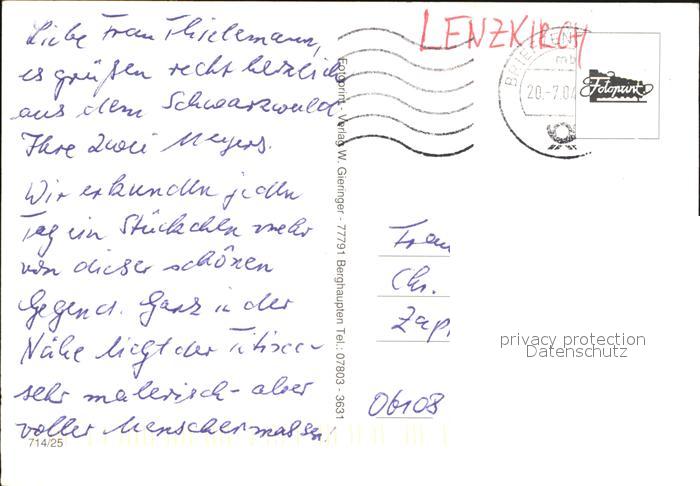 Liebe Frau Thielemann,
es grüßen recht herzlich
aus dem Schwarzwald
Ihre zwei Meyers.
Wir erkunden jeden
Tag ein Stückchen mehr
von dieser schönen
Gegend. Ganz in der
Nähe liegt der Titisee -
sehr malerisch - aber
voller Menschenmassen!
714/25
Fotoprint - Verlag W. Gieringer - 77791 Berghaupten Tel.: 07803 - 3631
LENZKIRCH
BRIEFZEN
mb
20.-7.04
Fotoprint
Frau
Chr.
Zap
06108
privacy protection
Datenschutz